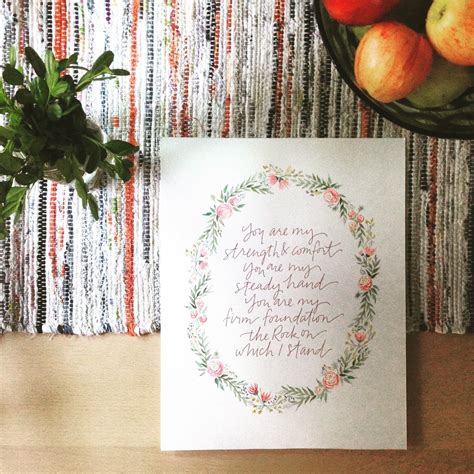 You are my
strength & comfort
You are my
steady hand
You are my
firm foundation
the Rock on
which I stand